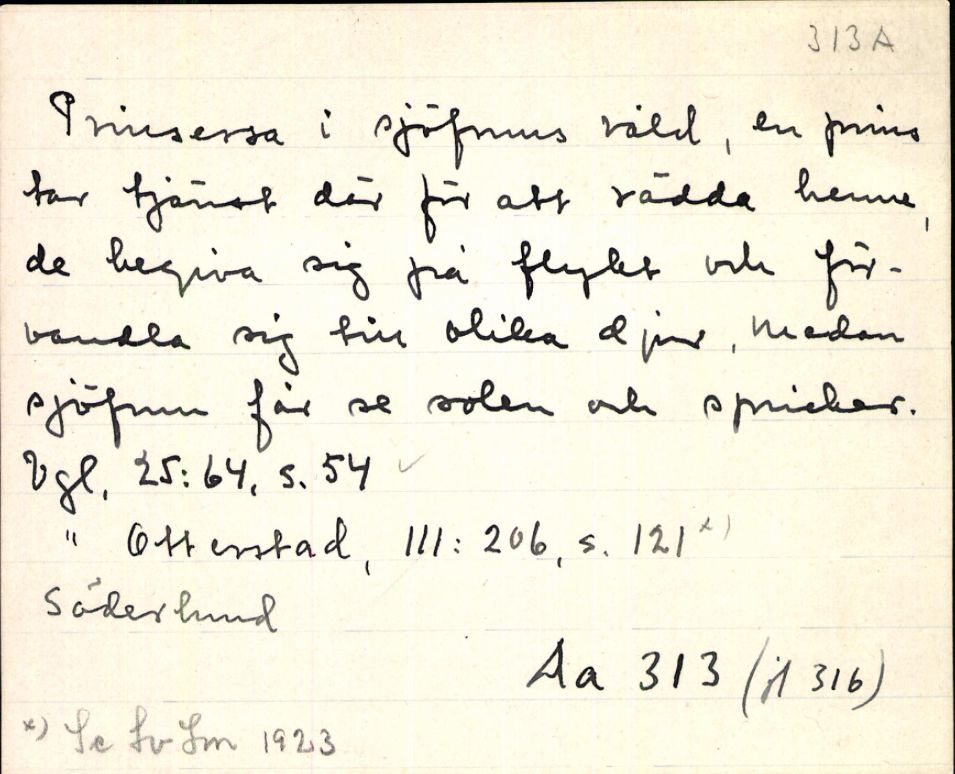 313A
Prinsessa i sjöfruns våld, en prins
tar tjänst där för att rädda henne,
de begiva sig på flykt och för-
vandla sig till olika djur, medan
sjöfrun får se solen och spricker.
Vgl, 25:64, s. 54 ✓
" Otterstad, III: 206, s. 121 x)
Söderlund
Aa 313 (jf 316)
x) Se Sv Sm 1923